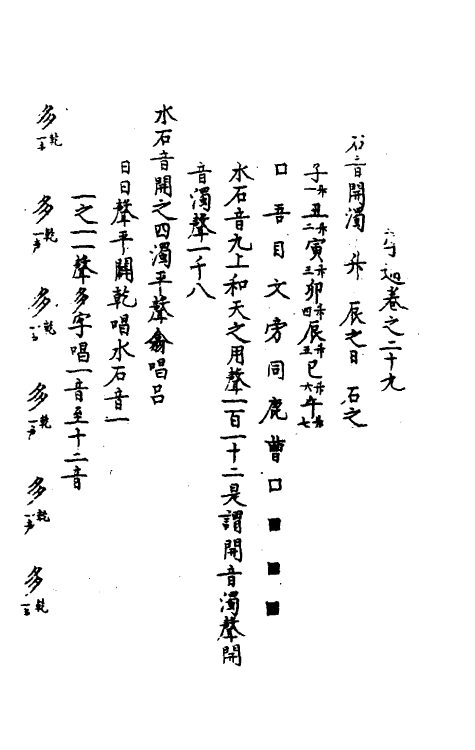 卷之二十九
石音開濁 升 辰之日 石之
子一升丑二升寅三升卯四升辰五升巳六升午七升
口吾目文旁同鹿曹口■■■
水石音九上和天之用聲一百一十二是謂開音濁聲開
音濁聲一千八
水石音開之四濁平聲翕唱呂
日日聲平闢乾唱水石音一
一之一聲多字唱一音至十二音
多乾一声 多乾一声 多乾一声 多乾一声 多乾一声 多乾一声